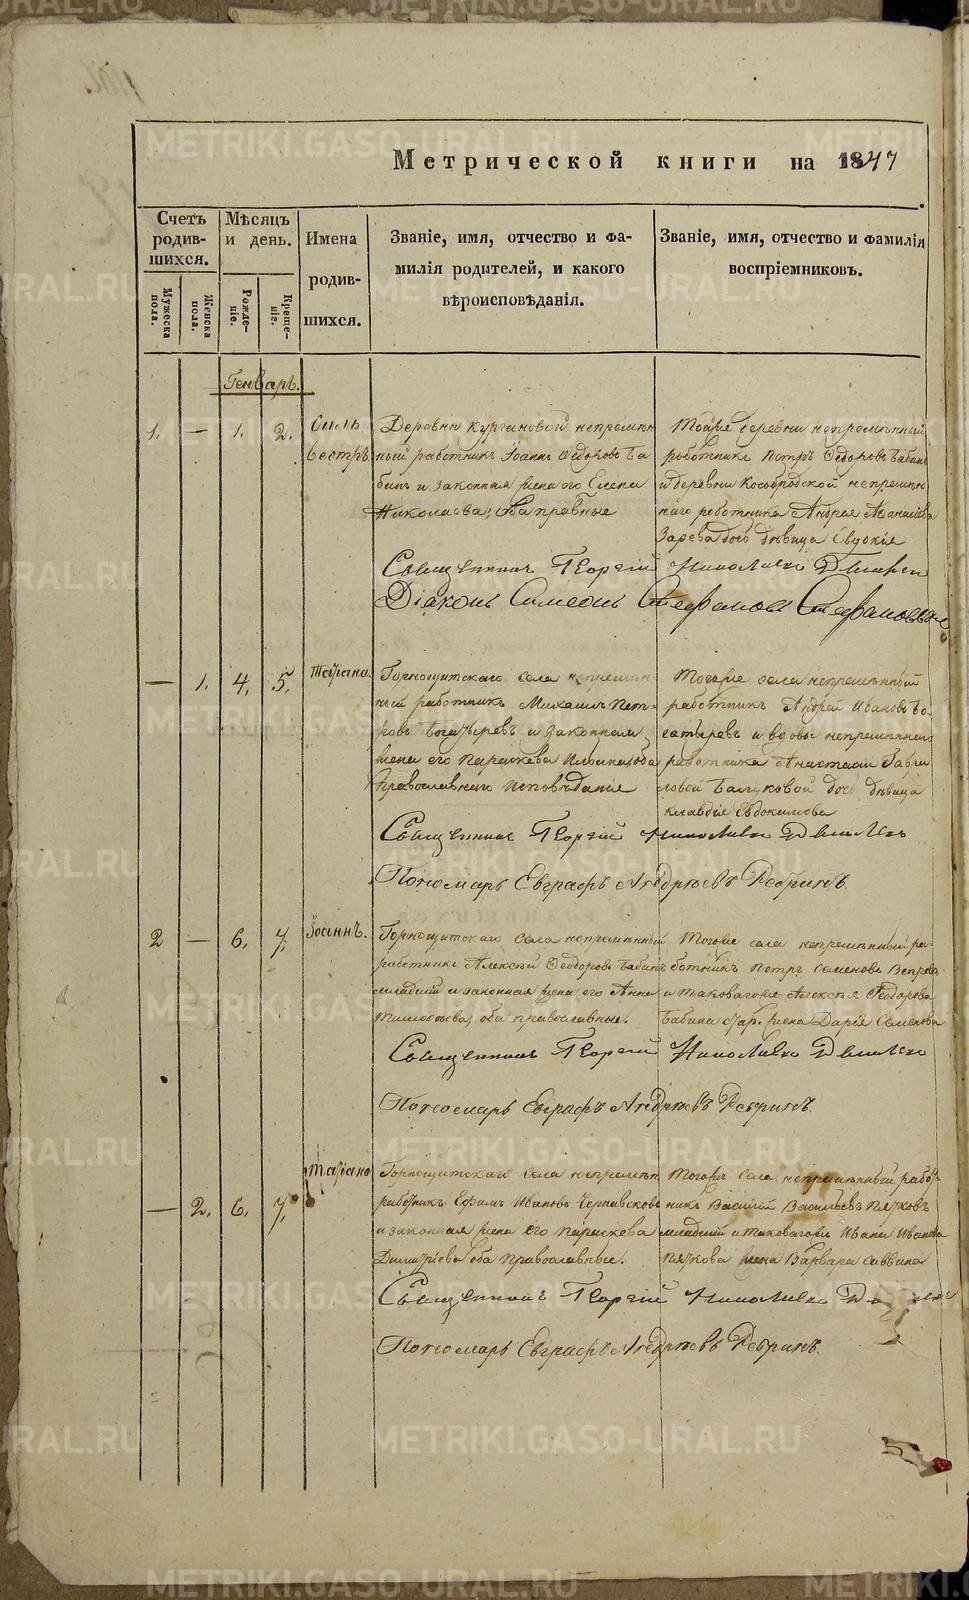 Метрической книги на 1847
Счетъ родив-шихся.
Мѣсяцъ и день.
Имена родив-шихся.
Званіе, имя, отчество и фа-
милія родителей, и какого
вѣроисповѣданія.
Званіе, имя, отчество и фамилія
воспріемниковъ.
Мужеска пола.
Женска пола.
Рожде-ніе.
Креще-ніе.
Генварь.
1. — 1. 2.
Силь
вестръ
Деревни Кургановой непремѣн
ный работникъ Іоаннъ Ѳедоровъ Ба
бинъ и законная жена его Елена
Николаева, оба правосл
Тойже деревни непремѣнный
работникъ Петръ Ѳедоровъ Бабинъ
и деревни Кособродской непремѣн
наго работника Андрея Аѳанасіева
Зарева дочь дѣвица Евдокія
Священникъ Георгій Николаевъ
Діаконъ Симеонъ Стефановъ Стефановскій
— 1. 4. 5.
Татіана.
Горнощитскаго села непремѣн
ный работникъ Михаилъ Пет-
ровъ Богатыревъ и законная
жена его Параскева
православнаго исповѣданія
Тогоже села непремѣнный
работникъ Андрей Ивановъ Бо-
гатыревъ и вдовы непремѣннаго
работника Анастасіи Гаври
ловой дочь дѣвица
Клавдія Евдокимова
Священникъ Георгій Николаевъ
Пономарь Евграфъ Андреевъ Ребринъ.
2 — 6. 7.
Іоаннъ.
Горнощитскаго села непремѣнный
работникъ Алексѣй Ѳеодоровъ Бабинъ
младшій и законная жена его Анна
Тимоѳеева, оба православные.
Тогоже села непремѣнный ра-
ботникъ Петръ Семеновъ Вепревъ
и таковагоже Алексѣя Ѳеодорова
Бабина жена Дарія Семенова
Священникъ Георгій Николаевъ
Пономарь Евграфъ Андреевъ Ребринъ.
— 2. 6. 7.
Татіана
Горнощитскаго села непремѣн
работникъ Ефимъ Ивановъ
и законная жена его Параскева
Димитріева оба православные.
Тогоже села непремѣнный работ
никъ Василій Васильевъ Пятковъ
младшій и таковагоже Ивана Иванова
Пяткова жена Варвара Саввина
Священникъ Георгій Николаевъ
Пономарь Евграфъ Андреевъ Ребринъ.
METRIKI.GASO-URAL.RU